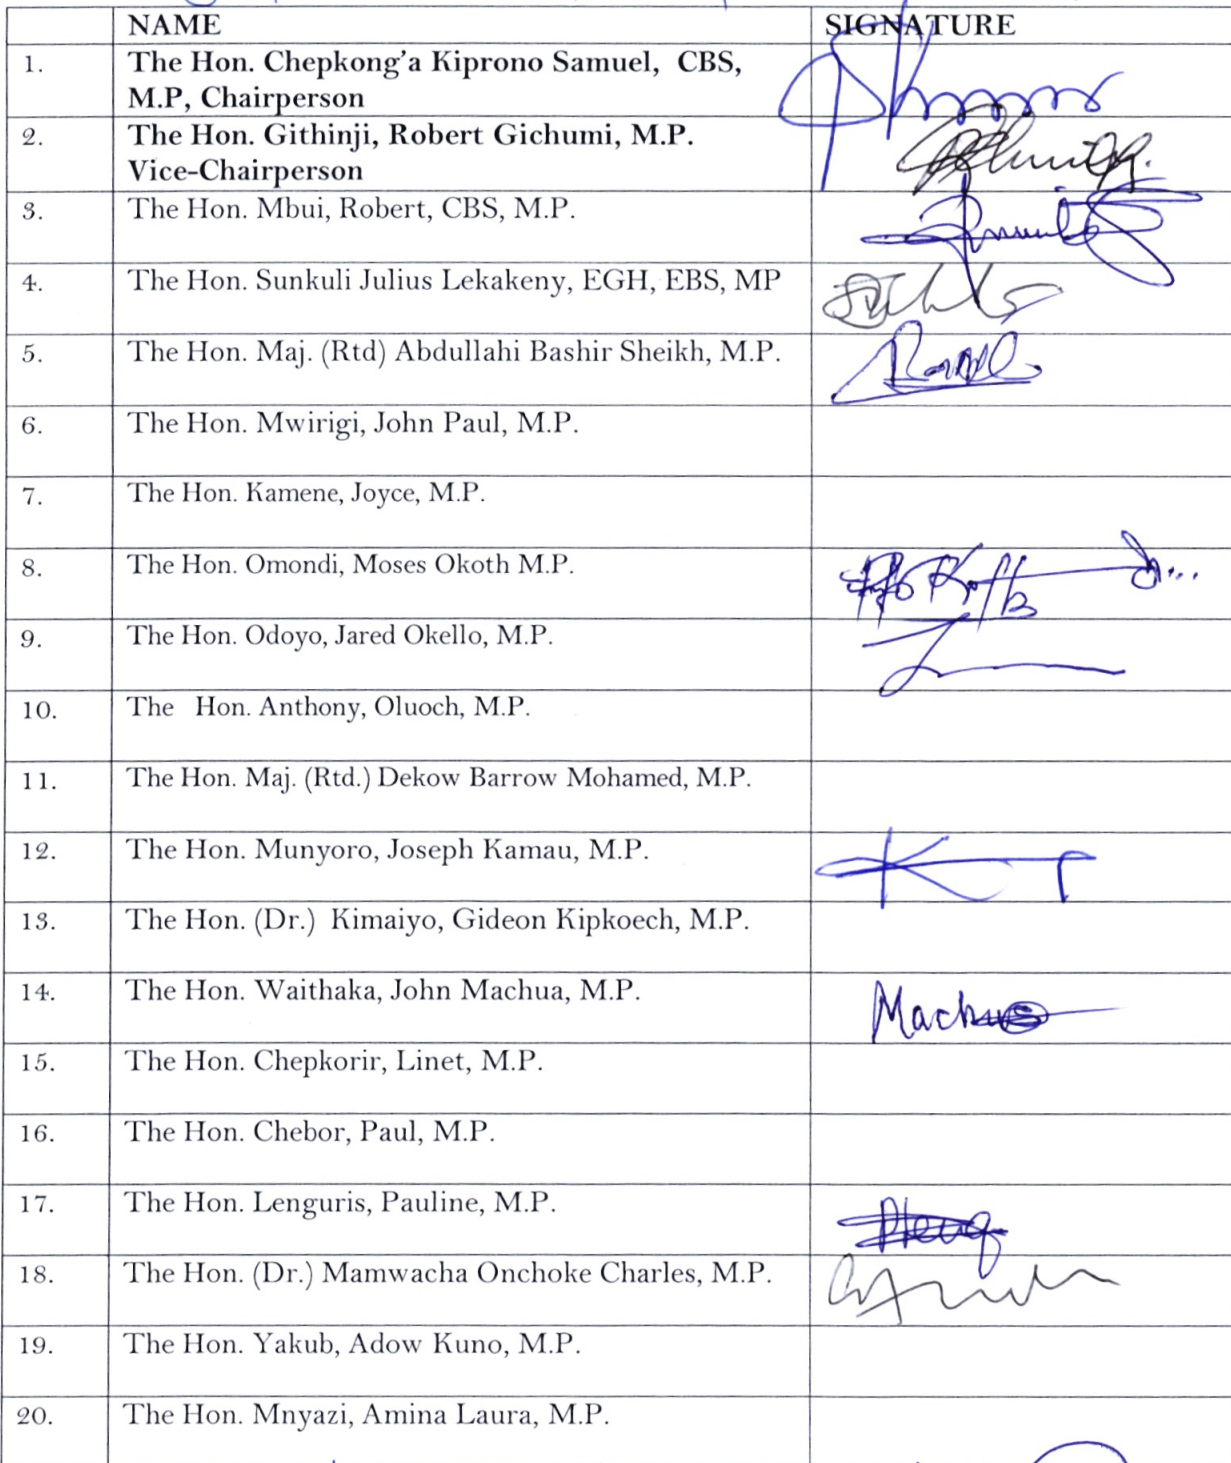 NAME SIGNATURE
1. The Hon. Chepkong'a Kiprono Samuel, CBS,
M.P, Chairperson
2. The Hon. Githinji, Robert Gichumi, M.P.
Vice-Chairperson
3. The Hon. Mbui, Robert, CBS, M.P.
4. The Hon. Sunkuli Julius Lekakeny, EGH, EBS, MP
5. The Hon. Maj. (Rtd) Abdullahi Bashir Sheikh, M.P.
6. The Hon. Mwirigi, John Paul, M.P.
7. The Hon. Kamene, Joyce, M.P.
8. The Hon. Omondi, Moses Okoth M.P.
9. The Hon. Odoyo, Jared Okello, M.P.
10. The Hon. Anthony, Oluoch, M.P.
11. The Hon. Maj. (Rtd.) Dekow Barrow Mohamed, M.P.
12. The Hon. Munyoro, Joseph Kamau, M.P.
13. The Hon. (Dr.) Kimaiyo, Gideon Kipkoech, M.P.
14. The Hon. Waithaka, John Machua, M.P.
15. The Hon. Chepkorir, Linet, M.P.
16. The Hon. Chebor, Paul, M.P.
17. The Hon. Lenguris, Pauline, M.P.
18. The Hon. (Dr.) Mamwacha Onchoke Charles, M.P.
19. The Hon. Yakub, Adow Kuno, M.P.
20. The Hon. Mnyazi, Amina Laura, M.P.